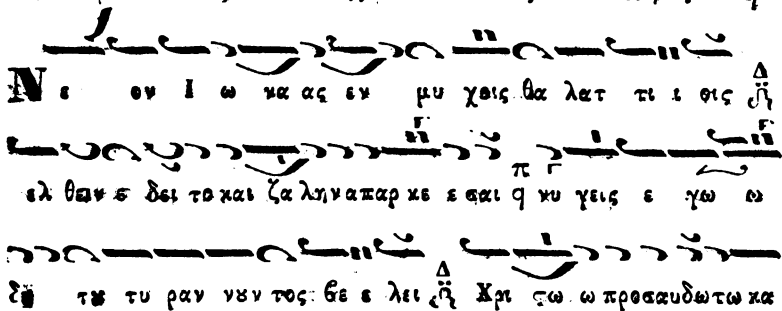 Νε ον Ι ω να ας εν μυ χοις θα λατ τι ι οις
ελ θειν ε δει το και ζα λην απαρ κε ε σαι νυ γεις ε γω ω
δε τω τυ ραν νουν τος βε ε λει Χρι στω ω προσαυδωτω κα